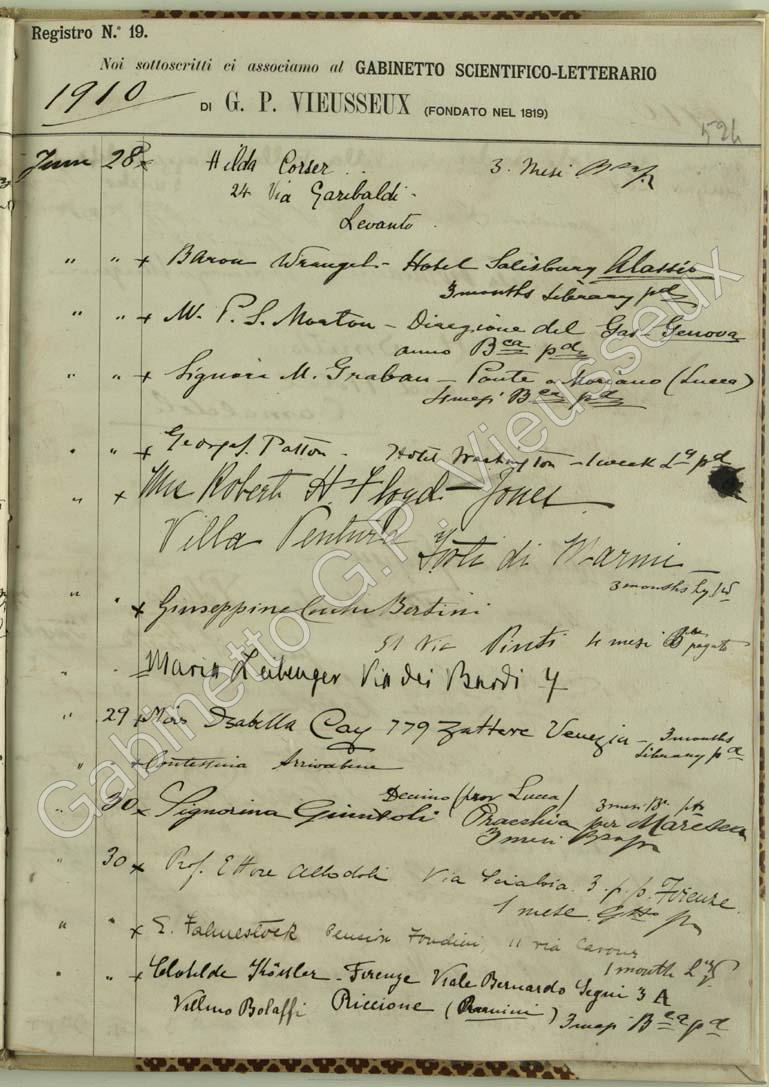 Registro N.° 19.
Noi sottoscritti ci associamo al GABINETTO SCIENTIFICO-LETTERARIO
1910
DI G. P. VIEUSSEUX (FONDATO NEL 1819)
526
June 28 x Hilda Corser .. 3. Mesi
24 Via Garibaldi -
Levanto.
" " x Baron Wrangel - Hotel Salisbury Alassio
3 months Library pd
" " x P. S. Morton - Direzione del Gas - Genova
anno Bca pd
" " x M. Graban - Ponte a Moriano (Lucca)
Bca pd
" " x George S. Patton - Hotel Washington - 1 week Ly pd
" x Mrs Robert H. Floyd-Jones
Villa Ventura di
3 months Ly pd
" " x Giuseppina Bertini
51 Via Pinti 4 mesi Bca pagato
" Maria Leibenger Via dei Bardi 7
" 29 x Miss Isabella Cay 779 Zattere Venezia - 3 months
Library pd
" " x Contessina Arrivabene
Decimo (prov Lucca) 3 mesi
" 30 x Signorina Giuntoli Pracchia per Maresca
3 mesi
" 30 x Prof. Ettore Allodoli Via Scialoia. 3. p. p. Firenze.
1 mese
" " x E. Fahnestock Pension 11 via Cavour
1 month
" " x Clotilde Kössler - Firenze Viale Bernardo Segni 3 A
Villino Bolaffi Riccione (Rimini) 3 mesi Bca pd
Gabinetto G.P. Vieusseux